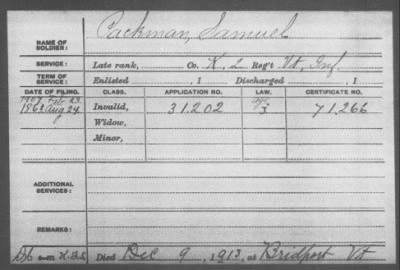 Packman, Samuel
NAME OF
SOLDIER:
SERVICE: Late rank, Co. K, 2 Reg't Vt. Inf.
TERM OF
SERVICE: Enlisted , 1 Discharged , 1
DATE OF FILING. CLASS. APPLICATION NO. LAW. CERTIFICATE NO.
1907 Feb 23
1863 Aug 24 Invalid, 31.202 71,266
Widow,
Minor,
ADDITIONAL
SERVICES:
REMARKS:
Died Dec 9, 1913, at Bridport Vt